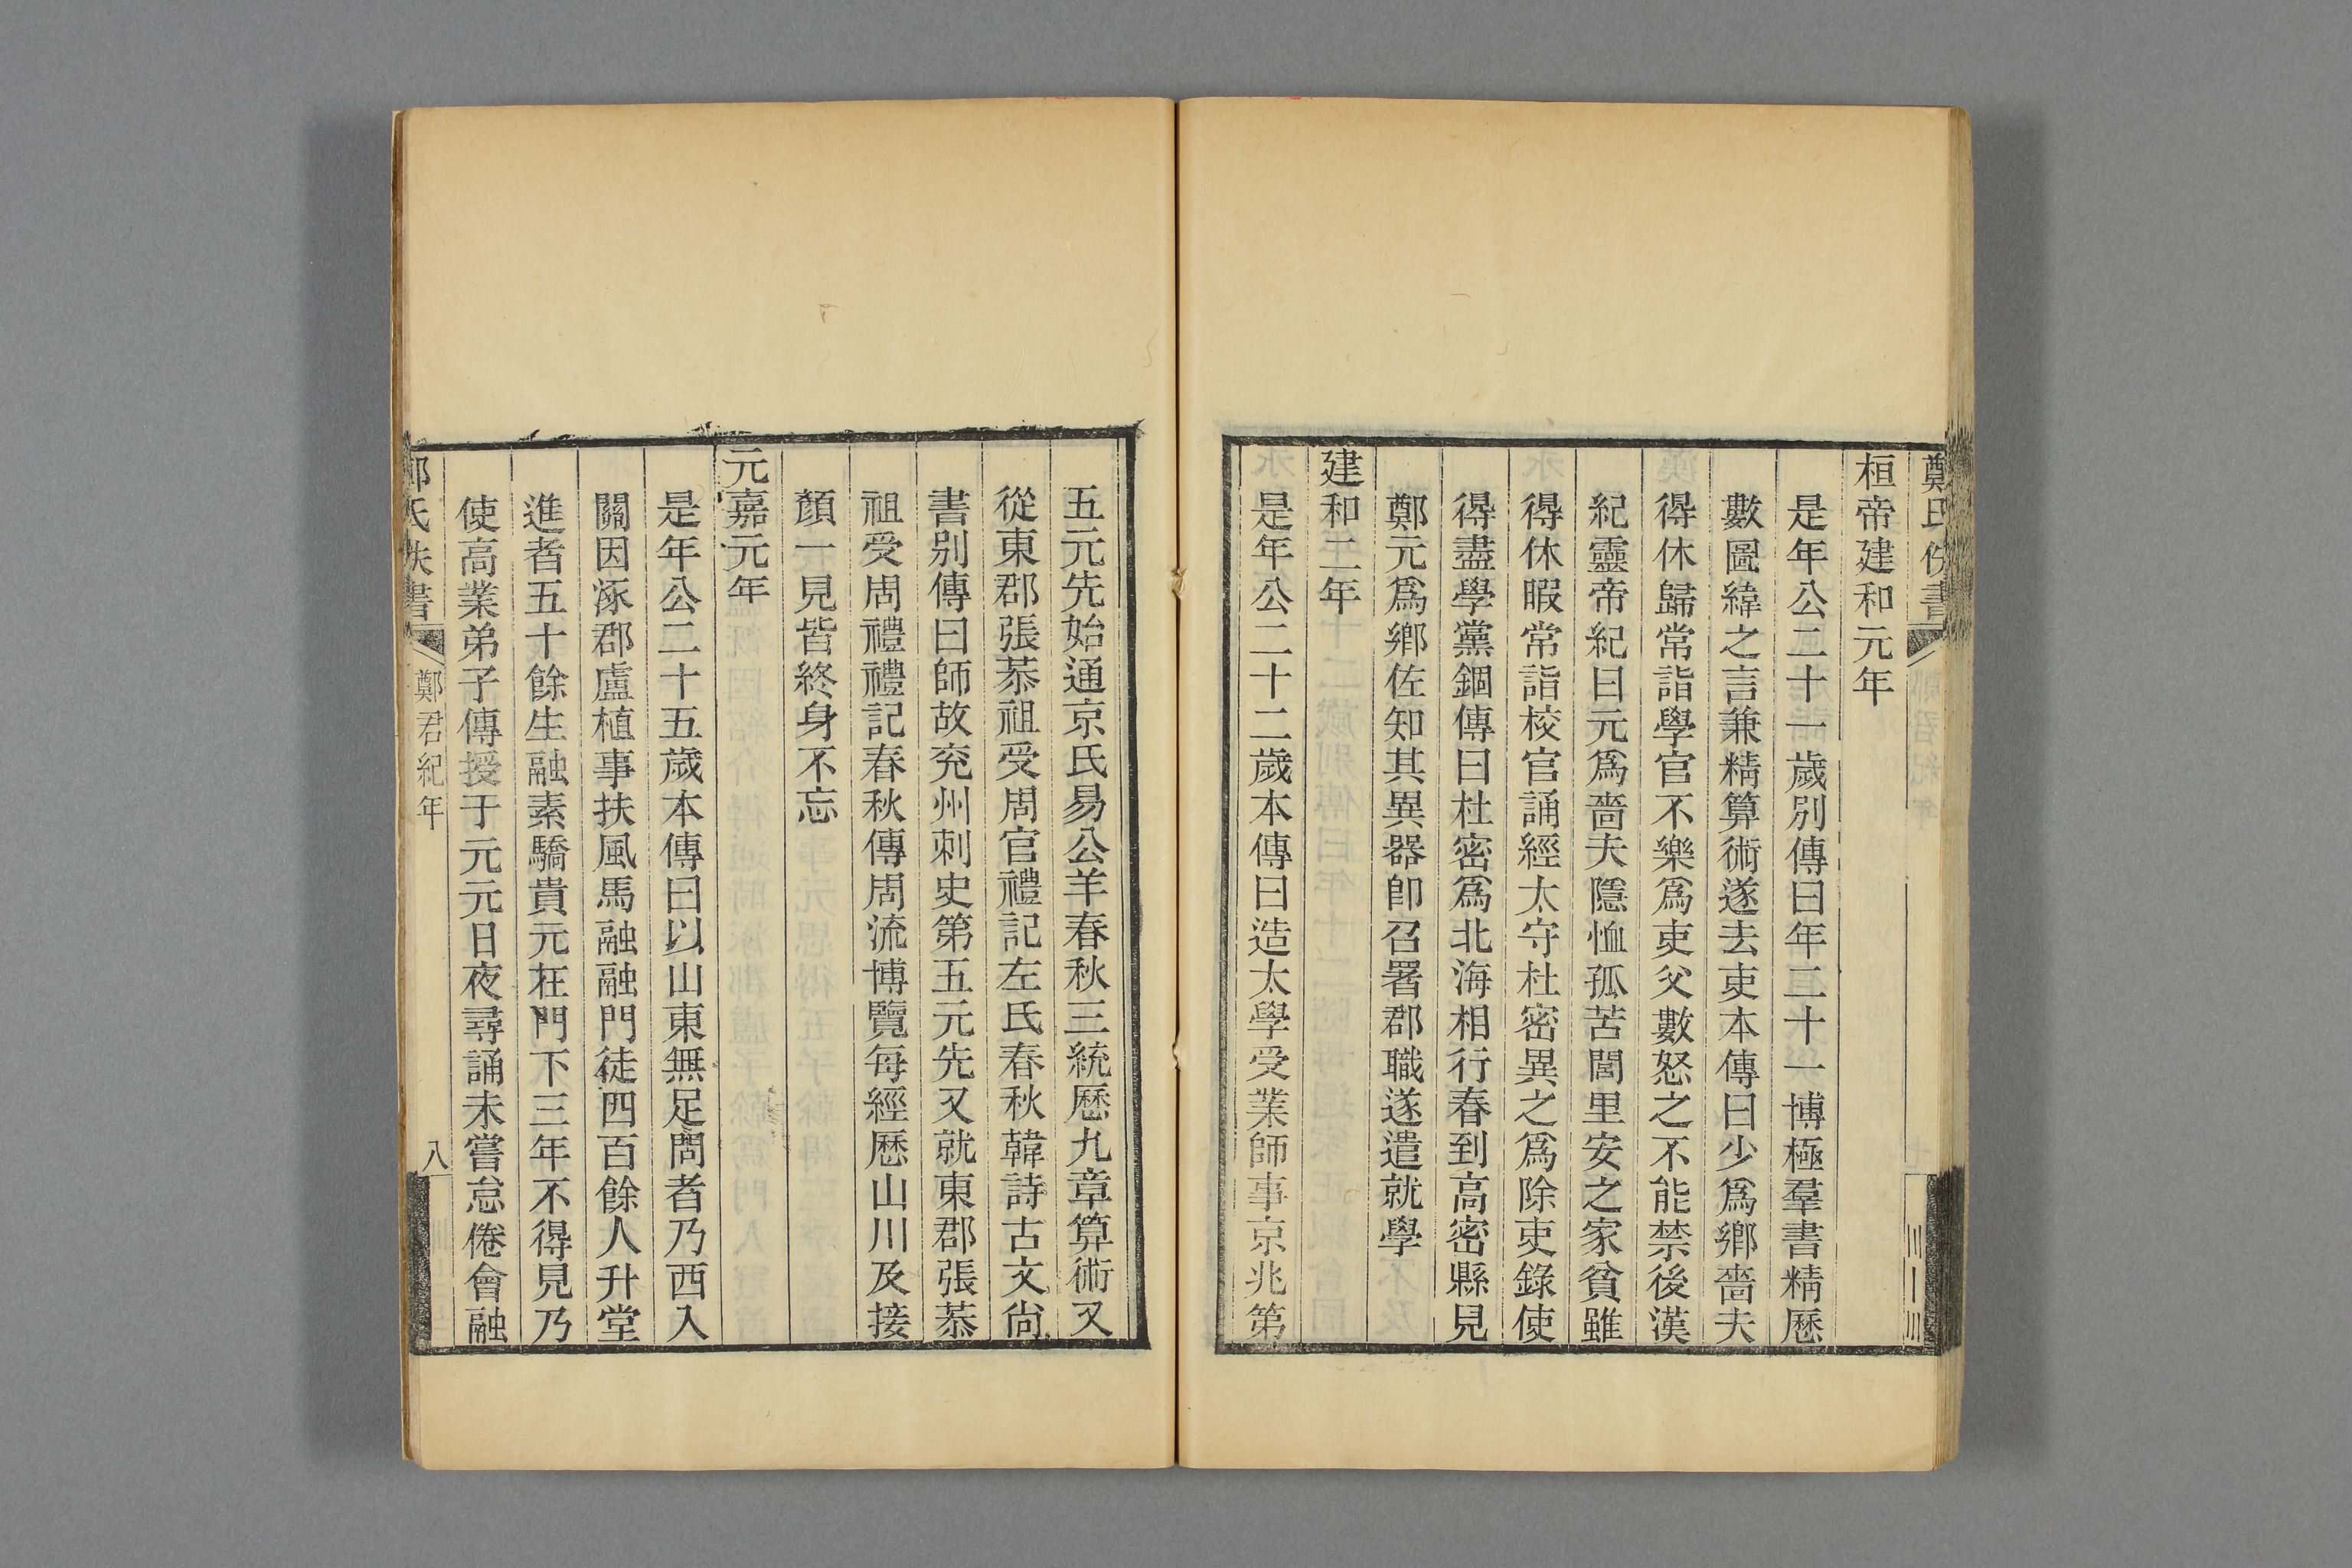 鄭氏佚書
桓帝建和元年
是年公二十一歲別傳曰年二十一博極羣書精歷
數圖緯之言兼精算術遂去吏本傳曰少爲鄉嗇夫
得休歸常詣學官不樂爲吏父數怒之不能禁後漢
紀靈帝紀曰元爲嗇夫隱恤孤苦閭里安之家貧雖
得休暇常詣校官誦經太守杜密異之爲除吏錄使
得盡學黨錮傳曰杜密爲北海相行春到高密縣見
鄭元爲鄉佐知其異器卽召署郡職遂遣就學
建和二年
是年公二十二歲本傳曰造太學受業師事京兆第
五元先始通京氏易公羊春秋三統歷九章算術又
從東郡張恭祖受周官禮記左氏春秋韓詩古文尙
書別傳曰師故兗州刺史第五元先又就東郡張恭
祖受周禮禮記春秋傳周流博覽每經歷山川及接
顏一見皆終身不忘
元嘉元年
是年公二十五歲本傳曰以山東無足問者乃西入
關因涿郡盧植事扶風馬融融門徒四百餘人升堂
進者五十餘生融素驕貴元在門下三年不得見乃
使高業弟子傳授于元元日夜尋誦未嘗怠倦會融
鄭氏佚書 鄭君紀年 八